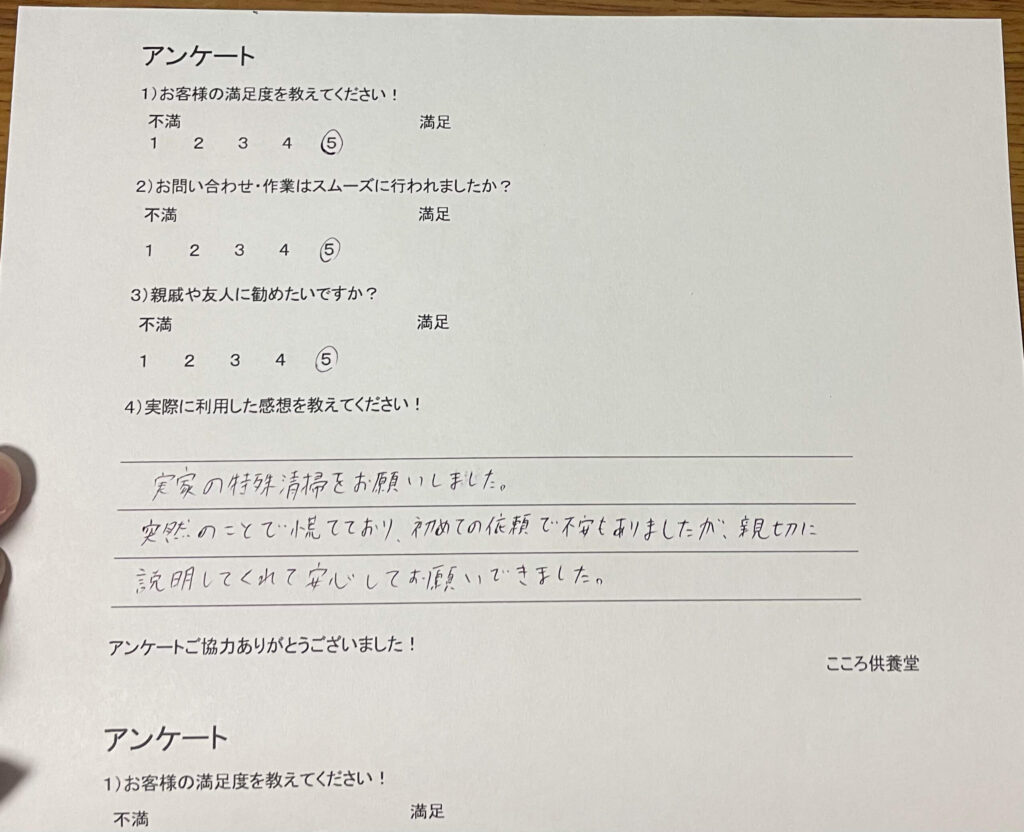 アンケート
1)お客様の満足度を教えてください！
不満 満足
1 2 3 4 5
2)お問い合わせ・作業はスムーズに行われましたか？
不満 満足
1 2 3 4 5
3)親戚や友人に勧めたいですか？
不満 満足
1 2 3 4 5
4)実際に利用した感想を教えてください！
実家の特殊清掃をお願いしました。
突然のことで慌てており、初めての依頼で不安もありましたが、親切に
説明してくれて安心してお願いできました。
アンケートご協力ありがとうございました！
こころ供養堂
アンケート
1)お客様の満足度を教えてください！
不満 満足